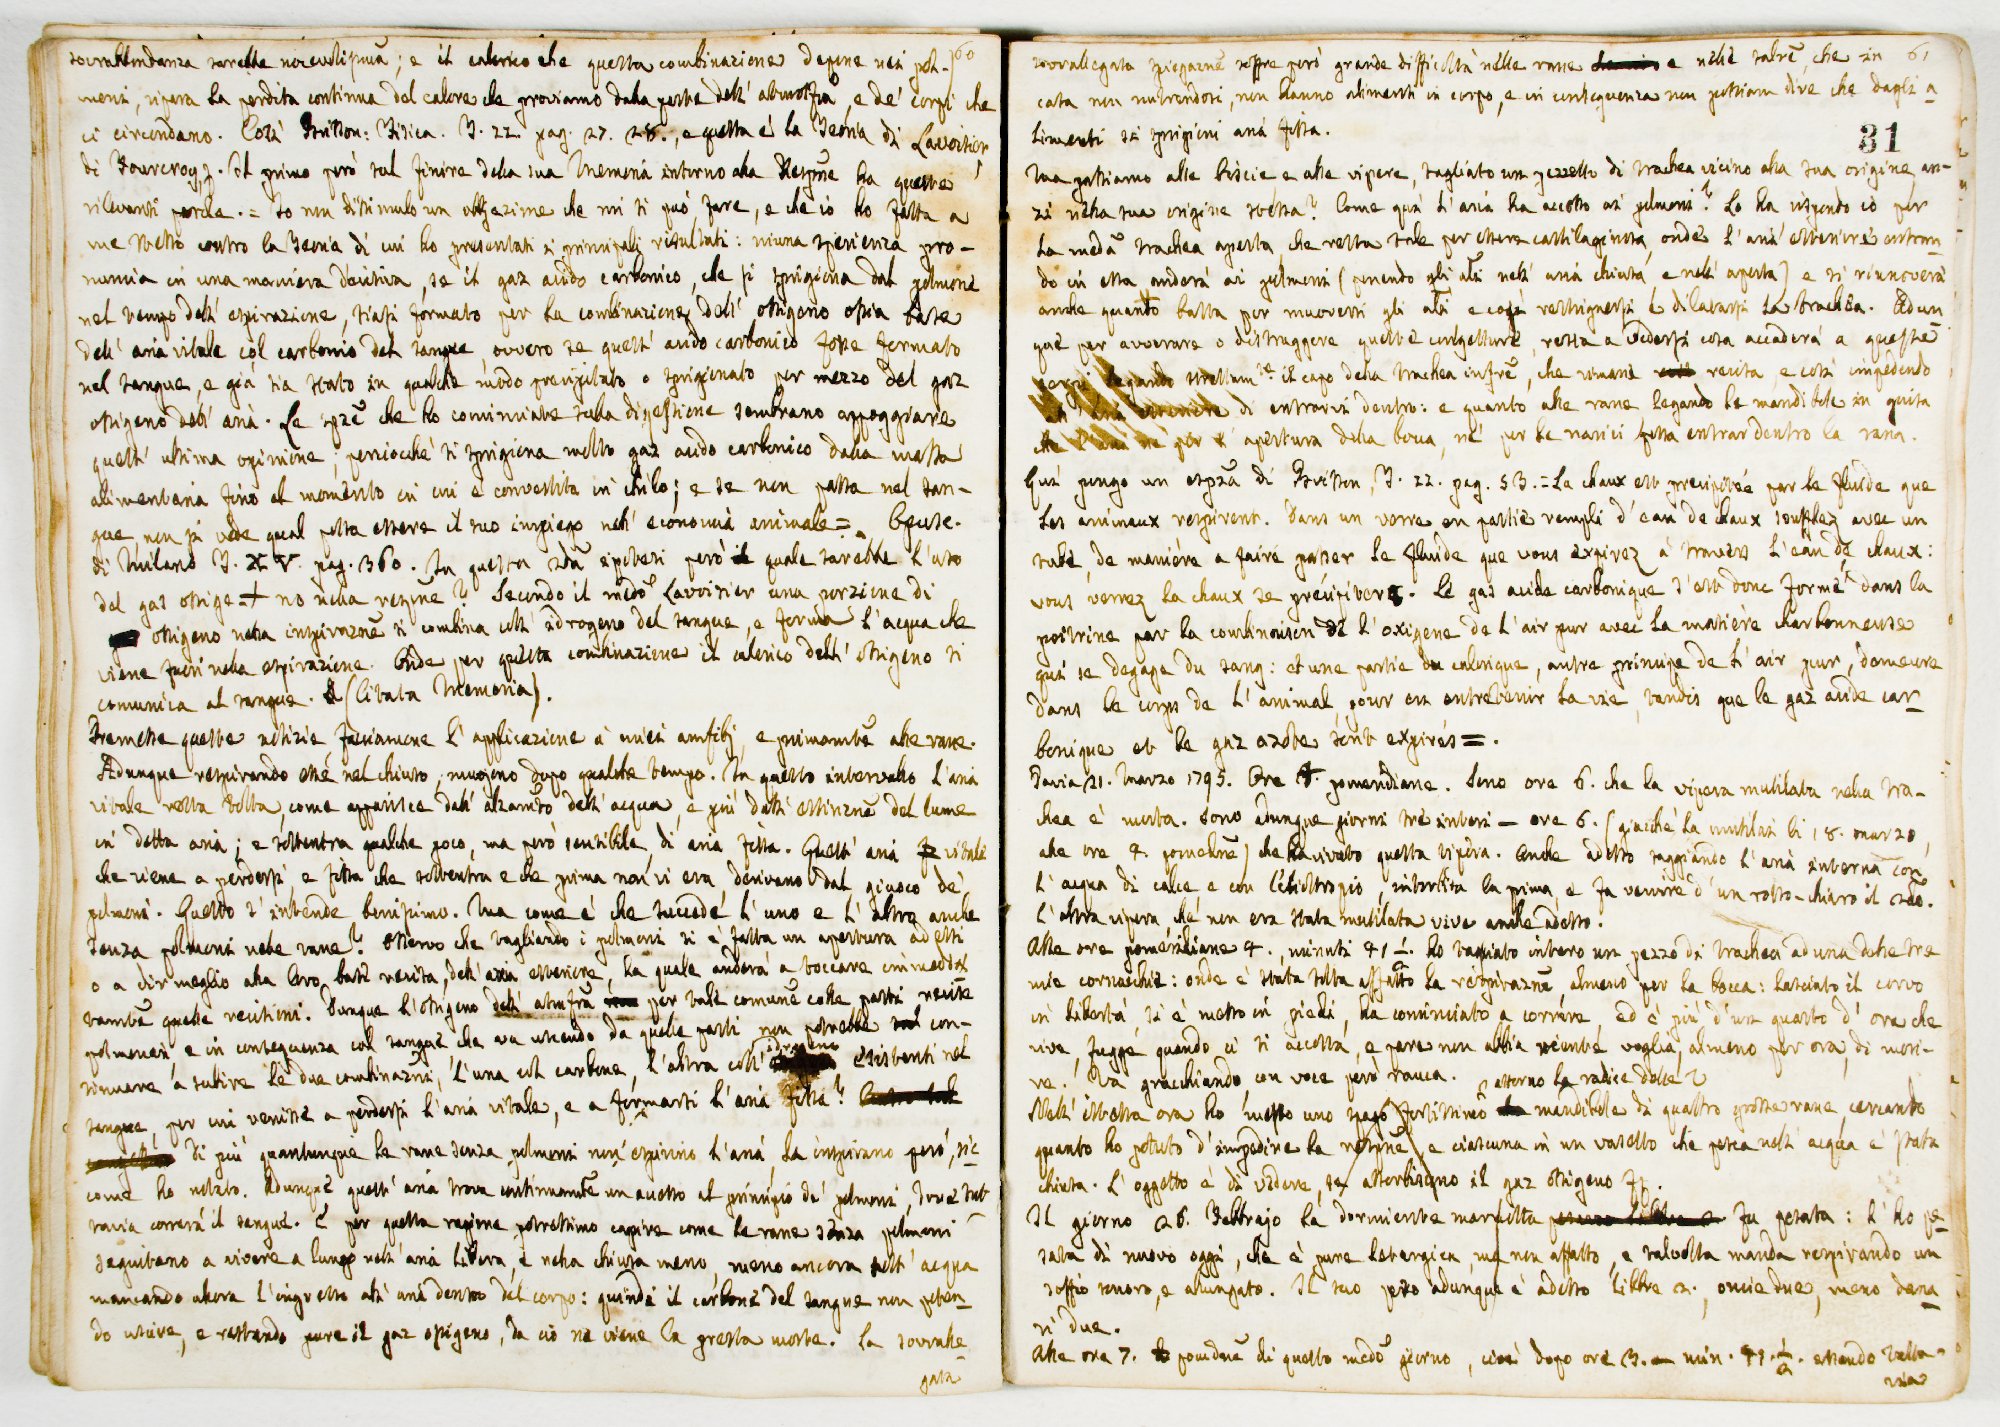 60
sovrabbondanza sarebbe nocevolissima; e il calorico che questa combinazione depone nei pol-
moni, ripara la perdita continua del calore che proviamo dalla parte dell' atmosfra, e de' corpi che
ci circondano. Così Brisson: Fisica. T. 22. pag. 27. 28., e questa è la Teoria di Lavoisier
di Fourcroy,. Il primo però sul finire della sua Memoria intorno alla Respne ha queste
rilevanti parole. = Io non dissimulo un obbjezione che mi si può fare, e che io ho fatta a
me stesso contro la Teoria di cui ho presentati i principali risultati: niuna sperienza pro-
nuncia in una maniera decisiva, se il gaz acido carbonico, che si sprigiona dal polmone
nel tempo dell' espirazione, siasi formato per la combinazione dell' ossigeno ossia base
dell' aria vitale col carbonio del sangue, ovvero se quest' acido carbonico fosse formato
nel sangue, e già sia stato in qualche modo precipitato o sprigionato per mezzo del gaz
ossigeno dell' aria. Le spze che ho cominciate sulla digestione sembrano appoggiare
quest' ultima opinione; perciocchè si sprigiona molto gaz acido carbonico dalla massa
alimentaria fino al momento in cui è convertita in chilo; e se non passa nel san-
gue non si vede qual possa essere il suo impiego nell' economia animale =. Opusc.
di Milano T. XV. pag. 360. In questa 2da ipotesi però il quale sarebbe l' uso
del gas ossige-+ no nella respne? Secondo il medo Lavoisier una porzione di
ossigeno nella inspirazne si combina coll' idrogeno del sangue, e forma l' acqua che
viene fuori nella espirazione. Onde per questa combinazione il calorico dell' ossigeno si
comunica al sangue. (Citata Memoria).
Premesse queste notizie facciamone l' applicazione a' miei amfibj, e primamte alle rane.
Adunque respirando esse nel chiuso, muojono dopo qualche tempo. In questo intervallo l' aria
vitale resta tolta, come apparisce dall' alzamto dell' acqua, e più dall' estinzne del lume
in detta aria; e sottentra qualche poco, ma però sensibile, di aria fissa. Quest' aria vitale
che viene a perdersi, e fissa che sottentra e che prima non vi era, derivano dal giuoco de'
polmoni. Questo s' intende benissimo. Ma come è che succede l' uno e l' altro anche
senza polmoni nelle rane? Osservo che tagliando i polmoni si è fatta un apertura ad essi
o a dir meglio alla loro base recisa, dell' aria esteriore, la quale anderà a toccare immedia
tamte quelle recisioni. Dunque l' ossigeno dell' atmosfra per tale comune colle parti recise
polmonari e in conseguenza col sangue che va uscendo da quelle parti non potrebbe con-
tinuare a subire le due combinazni, l' una col carbone, l' altra coll' idrogeno esistenti nel
sangue, per cui venisse a perdersi l' aria vitale, e a formarsi l' aria fissa?
Di più quantunque le rane senza polmoni non espirino l' aria, la inspirano però, sic
come ho notato. Adunque quest' aria trova continuamte un accesso al principio de' polmoni, dove tut
tavia correrà il sangue. E per questa ragione potressimo capire come le rane senza polmoni
seguitano a vivere a lungo nell' aria libera, e nella chiusa meno, meno ancora sott' acqua
mancando allora l' ingresso all' aria dentro del corpo: quindi il carbone del sangue non poten-
do uscire, e restando pure il gaz ossigeno, da ciò ne viene la presta morte. La sovralle-
gata
61
31
sovrallegata spiegazne soffre però grande difficoltà nelle rane e nelle salre, che in
cata non nutrendosi, non hanno alimenti in corpo, e in conseguenza non possiam dire che dagli a
limenti si sprigioni aria fissa.
Ma passiamo alle biscie e alle vipere, tagliato un pezzetto di trachea vicino alla sua origine, an-
zi nella sua origine stessa? Come quì l' aria ha accesso ai polmoni? Lo ha rispondo io per
la meda trachea aperta, che resta tale per essere cartilaginosa, onde l' aria esteriore entran
do in essa anderà ai polmoni (ponendo gli ali nell' aria chiusa, e nell' aperta) e si rinnoverà
anche quanto basta per muoversi gli ali e così restringersi e dilatarsi la trachea. Adun
que per avverare o distruggere queste congetture, resta a vedersi cosa accaderà a queste
legando strettamte il capo della trachea infre, che rimane recisa, e così impedendo
di entrarvi dentro: e quanto alle rane legando le mandibole in guisa
che l' aria nè per l' apertura della bocca, nè per le narici possa entrar dentro la rana.
Quì pongo un espza di Brisson, T. 22. pag. 53. = La chaux est precipitée par le fluide que
les animaux respirent. Dans un verre en partie rempli d' eau de chaux soufflez avec un
tube, de manière a faire passer le fluide que vous expirez à travers l' eau de chaux:
vous verrez la chaux se précipiter. Le gaz acide carbonique s' est donc formé dans la
poitrine par la combinaison de l' oxigene de l' air pur avec la matière charbonneuse
qui se degage du sang: et une partie du calorique, autre principe de l' air pur, demeure
dans le corps de l' animal pour en entretenir la vie, tandis que le gaz acide car-
bonique et le gaz azote sont expirés =.
Pavia 21. Marzo 1795. Ore 4. pomeridiane. Sono ore 6. che la vipera mutilata nella tra-
chea è morta. Sono adunque giorni tre interi - ore 6. (giacchè la mutilai li 18. marzo,
alle ore 4. pomerne) che ha vivuto questa vipera. Anche adesso saggiando l' aria interna con
l' acqua di calce e con l' eliotropio, intorbida la prima, e fa venire d' un rosso-chiaro il 2do.
L' altra vipera che non era stata mutilata vive anche adesso.
Alle ore pomeridiane 4., minuti 41 1/2. ho tagliato intero un pezzo di trachea ad una delle tre
mie cornacchie: onde è stata tolta affatto la respirazne, almeno per la bocca: lasciato il corvo
in libertà, si è messo in piedi, ha cominciato a correre, ed è più d' un quarto d' ora che
vive, fugge quando ci si accosta, e pare non abbia niente voglia, almeno per ora, di mori-
re. Va gracchiando con voce però rauca. attorno la radice delle
Nell' istessa ora ho messo uno spago fortissimo mandibole di quattro grosse rane, cercando
quanto ho potuto d' impedire la respne, e ciascuna in un vasetto che pesca nell' acqua è stata
chiusa. L' oggetto è di vedere, se assorbiscono il gaz ossigeno.
Il giorno 26. Febbrajo la dormiente marmotta fu pesata: l' ho pe-
sata di nuovo oggi, che è pure letargica, ma non affatto, e talvolta manda respirando un
soffio sonoro, e allungato. Il suo peso adunque è adesso libbre 2., oncie due, meno dena-
ri due.
Alle ore 7. pomerdne di questo medo giorno, cioè dopo ore 3. min. 41. 1/2. essendo tutta-
via